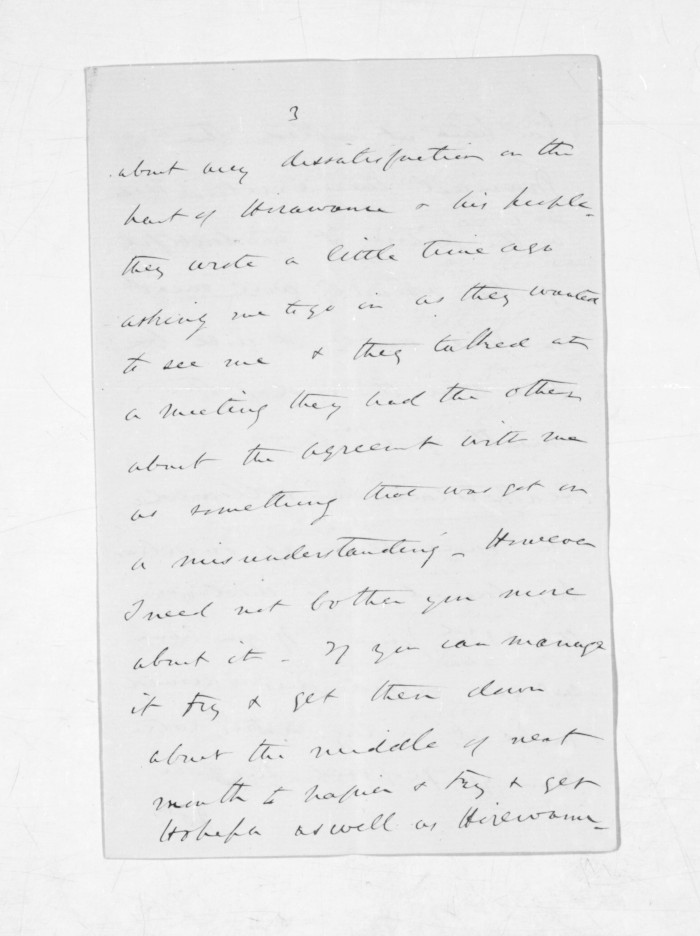 3
about any dissatisfaction on the
part of Hirawanu & his people.
they wrote a little time ago
asking me to go in as they wanted
to see me & they talked at
a meeting they had the other
about the agreeent with me
as something that was got in
a misunderstanding_ However
I need not bother you more
about it - If you can manage
it try & get them down
about the middle of next
month to napier & try & get
Hohepa as well as Hirewanu_